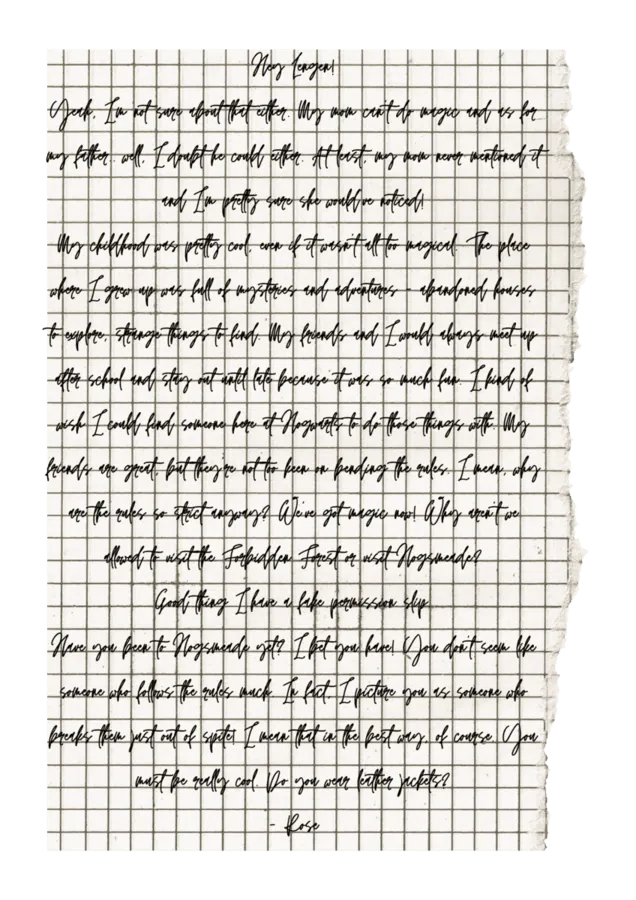 Hey Lengen!
Yeah, I'm not sure about that either. My mom can't do magic and as for
my father.. well, I doubt he could either. At least, my mom never mentioned it
and I'm pretty sure she would've noticed!
My childhood was pretty cool, even if it wasn't all too magical. The place
where I grew up was full of mysteries and adventures - abandoned houses
to explore, strange things to find. My friends and I would always meet up
after school and stay out until late because it was so much fun. I kind of
wish I could find someone here at Hogwarts to do those things with. My
friends are great, but they're not too keen on bending the rules. I mean, why
are the rules so strict anyway? We've got magic now! Why aren't we
allowed to visit the Forbidden Forest or visit Hogsmeade?
Good thing I have a fake permission slip.
Have you been to Hogsmeade yet? I bet you have! You don't seem like
someone who follows the rules much. In fact, I picture you as someone who
breaks them just out of spite! I mean that in the best way, of course. You
must be really cool. Do you wear leather jackets?
- Rose